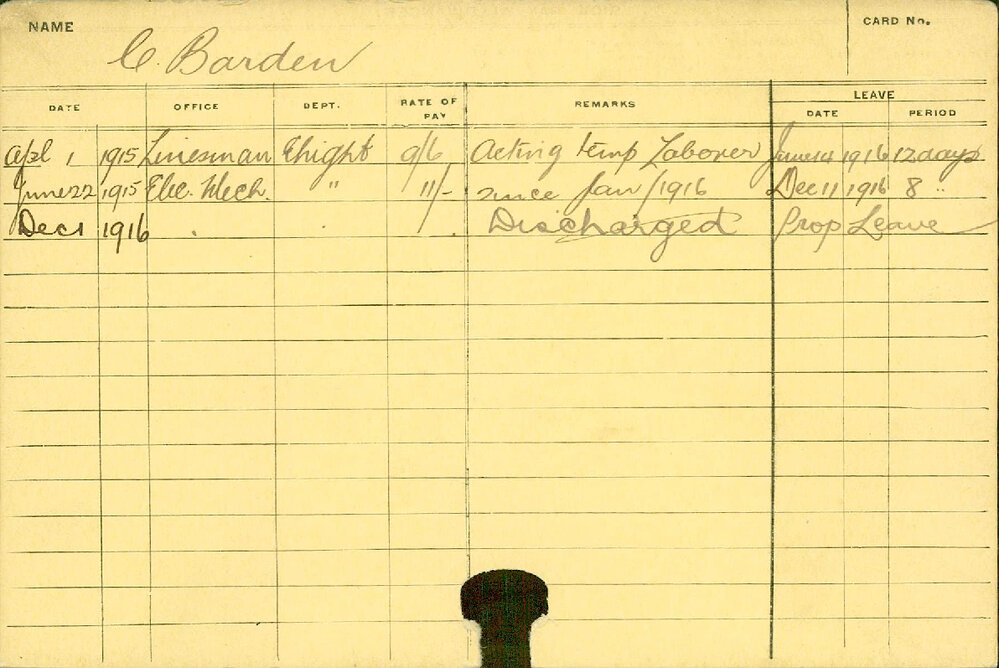 NAME
CARD No.
C. Barden
LEAVE
DATE OFFICE DEPT. RATE OF PAY REMARKS DATE PERIOD
Apl 1 1915 Linesman Elight 9/6 Acting temp Laborer June 14 1916 12 days
June 22 1915 Elec. Mech. " 11/- since Jan / 1916 Dec 11 1916 8 "
Dec 1 1916 Discharged Prop Leave